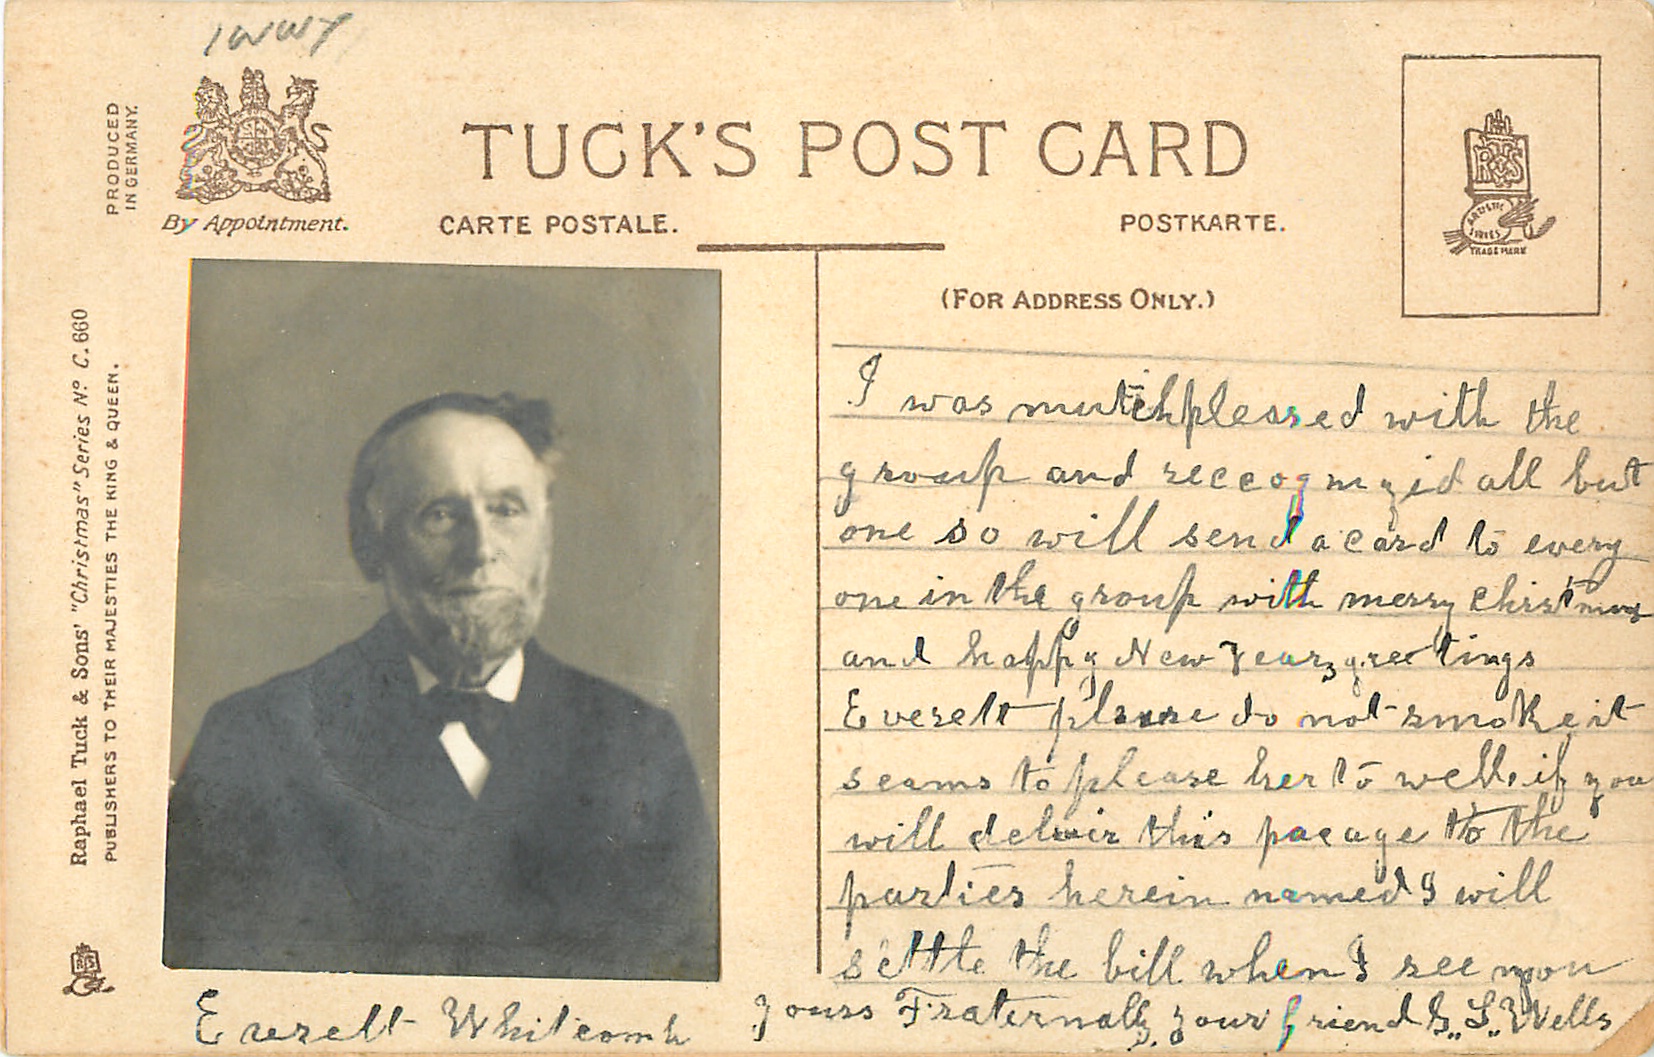 PRODUCED
IN GERMANY.
By Appointment.
TUCK'S POST CARD
CARTE POSTALE.
POSTKARTE.
(FOR ADDRESS ONLY.)
R T & S
ARTISTIC
SERIES
TRADE MARK
Raphael Tuck & Sons' "Christmas" Series Nº C. 660
PUBLISHERS TO THEIR MAJESTIES THE KING & QUEEN.
I was mutch pleased with the
group and reccognized all but
one so will send a card to every
one in the group with merry Christmas
and happy New Years greetings
Everett please do not smoke it
seams to please her to well. if you
will deliver this pacage to the
parties herein named I will
settle the bill when I see you
yours Fraternally, your friend G. L. Wells
Everett Whitcomb